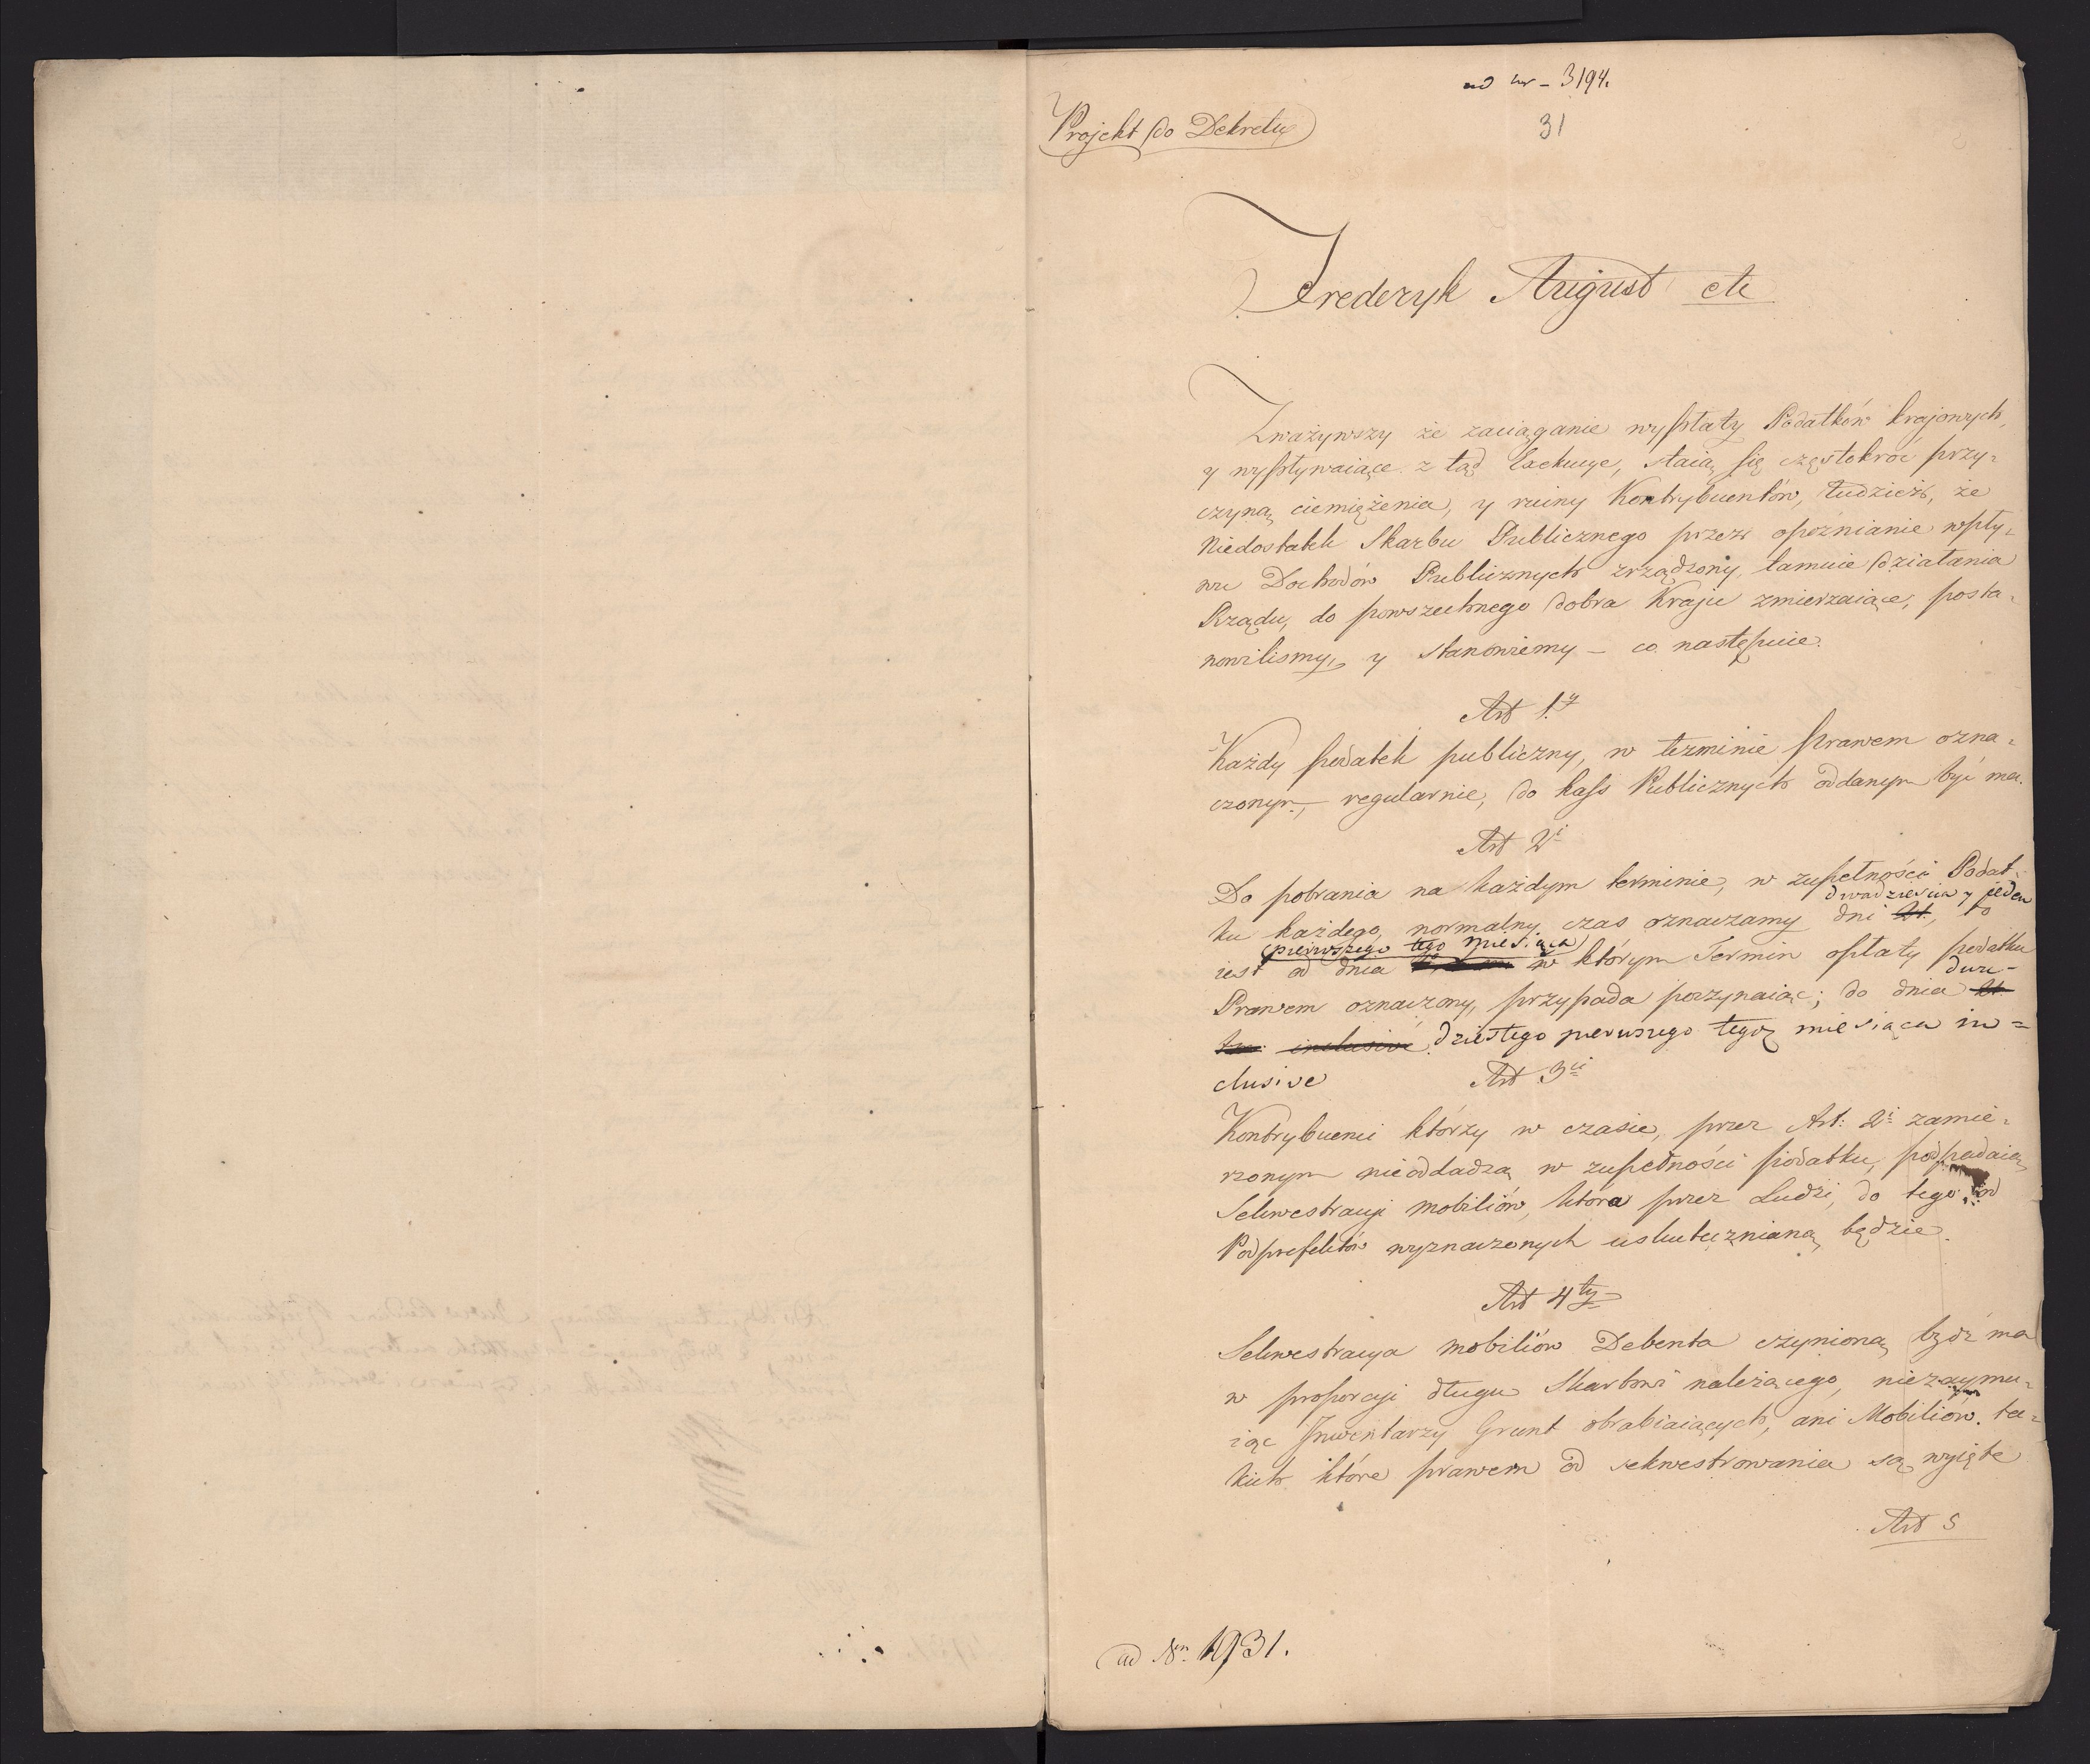 ad Nr – 3194.
31
Projekt do Dekretu
Frederyk August etc
Zważywszy że zaciąganie wypłaty Podatków krajowych,
y wypływaiące z tąd Exekucye, staią się częstokroć przy-
czyną ciemiężenia, y ruiny Kontrybuentów, tudzież, że
Niedostatek Skarbu Publicznego przez opoźnianie wpły-
wu Dochodów Publicznych zrządzony, tamuie działania
Rządu, do powszechnego dobra Kraju zmierzaiące, posta-
nowilismy, y stanowiemy – co następuie.
Art 1.y
Każdy podatek publiczny, w terminie prawem ozna-
czonym, regularnie, do kass Publicznych oddanym być ma.
Art 2i
Do pobrania na każdym terminie, w zupełności Podat-
dwadzieścia y jeden
ku każdego, normalny czas oznaczamy dni 21., to
pierwszego tego miesiąca
iest od dnia w którym Termin opłaty podatku
dwu-
Prawem oznaczony, przypada poczynaiąc; do dnia 21.
inclusive dziestego pierwszego tegoż miesiąca in=
clusive
Art 3ci
Kontrybuenci którzy w czasie, przez Art: 2i zamie-
rzonym nieoddadzą w zupełności podatku, podpadaią
Sekwestracyi mobiliów, która przez Ludzi, do tego od
Podprefektów wyznaczonych uskuteczniana będzie.
Art 4ty
Sekwestracya mobiliów Debenta czynioną bydź ma
w proporcyi długu Skarbowi należącego, niezaymu-
iąc Inwentarzy Grunt obrabiaiących, ani Mobiliów ta-
kich które prawem od sekwestrowania są wyięte
Art 5
ad Nrm 1931.